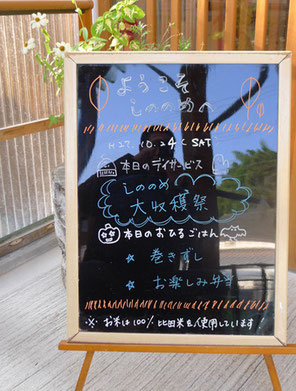 ようこそ
しののめへ
H27.10.24 SAT
本日のデイサービス
しののめ
大収穫祭
本日のおひるごはん
★ 巻きずし
★ お楽しみ弁当
※ お米は100%比田米を使用しています!